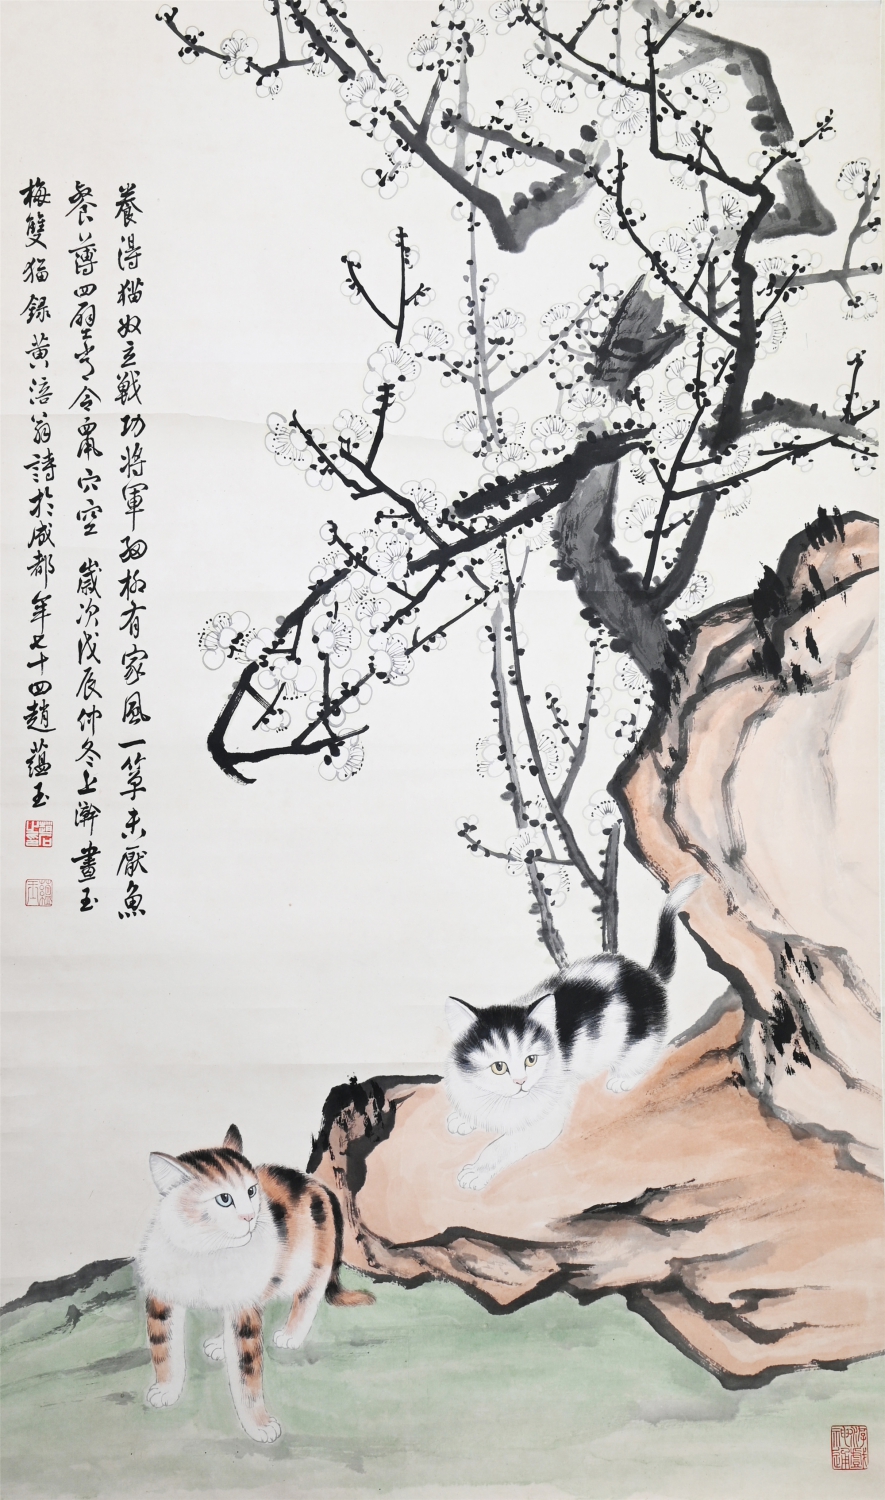 養得猫奴立戰功將軍細柳有家風一簞未厭魚
餐薄四壁當令鼠穴空 歲次戊辰仲冬上澣畫玉
梅雙猫錄黃涪翁詩於成都年七十四趙蘊玉
蘊玉
游戲神通